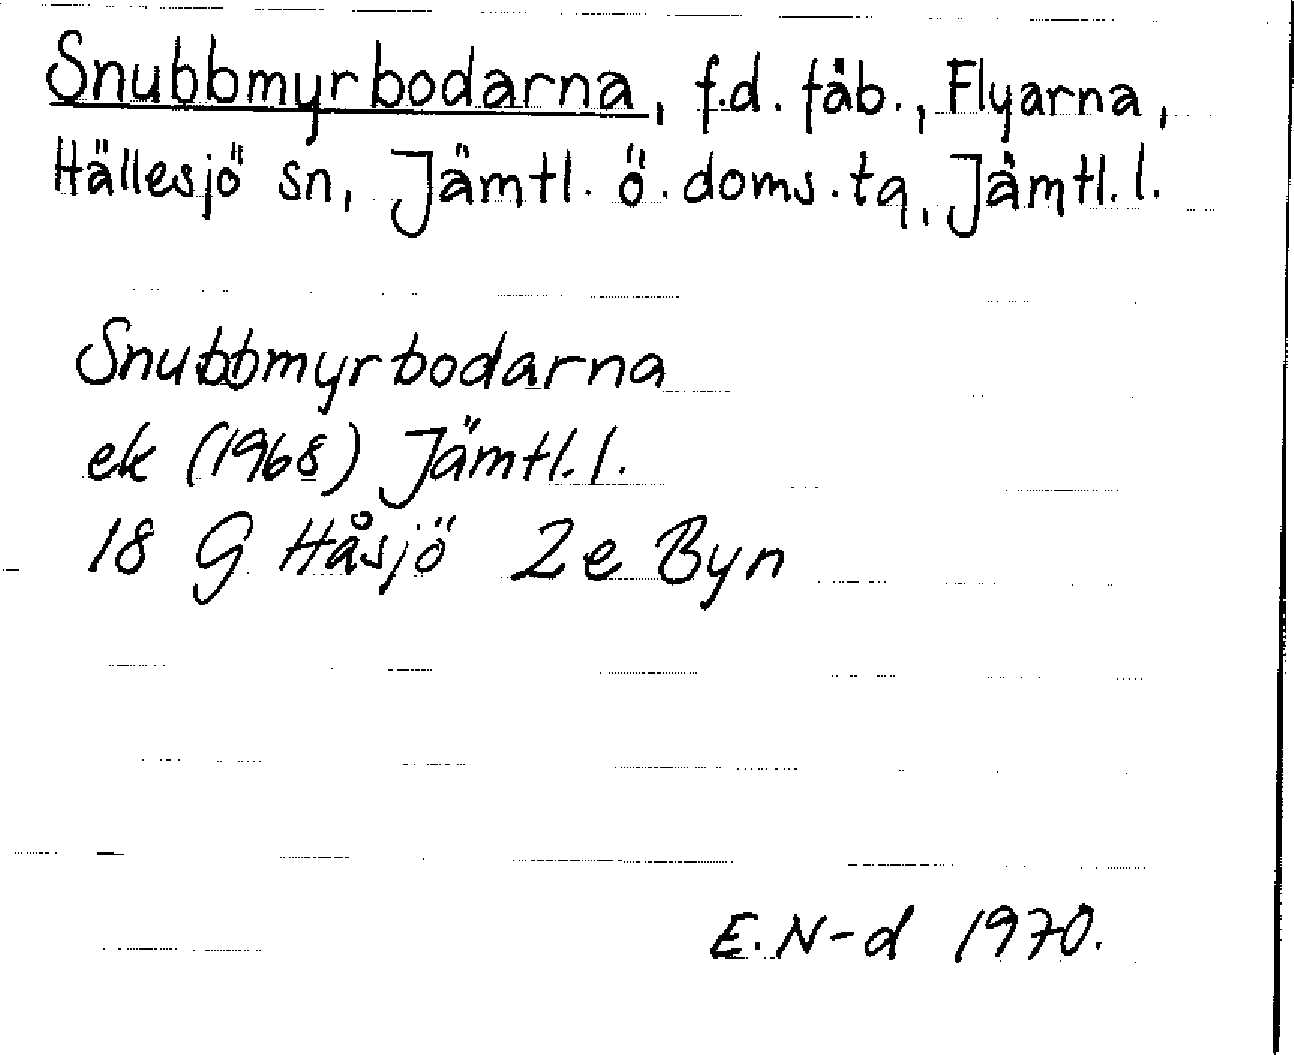 Snubbmyrbodarna, f.d. fäb., Flyarna,
Hällesjö sn, Jämtl. ö. doms.tq, Jämtl. l.
Snubbmyrbodarna
ek (1968) Jämtl. l.
18 G Håsjö 2e Byn
E. N-d 1970.